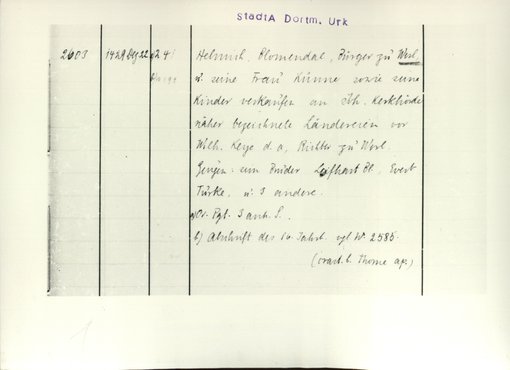 StadtA Dortm. Urk
2603 1429 Dez 22 02 41 Helmich Blomendal, Bürger zu Werl,
u. seine Frau Künne sowie seine
Kinder verkaufen an Joh. Kerkhörde
näher bezeichnete Ländereien vor
Wilh. Leye d. a, Richter zu Werl.
Zeugen: sein Bruder Bl, Evert
Türke, u. 3 andere.
a) Or. Pgt. 3 anh. S.
b) Abschrift des 16. Jahrh. vgl Nr. 2585